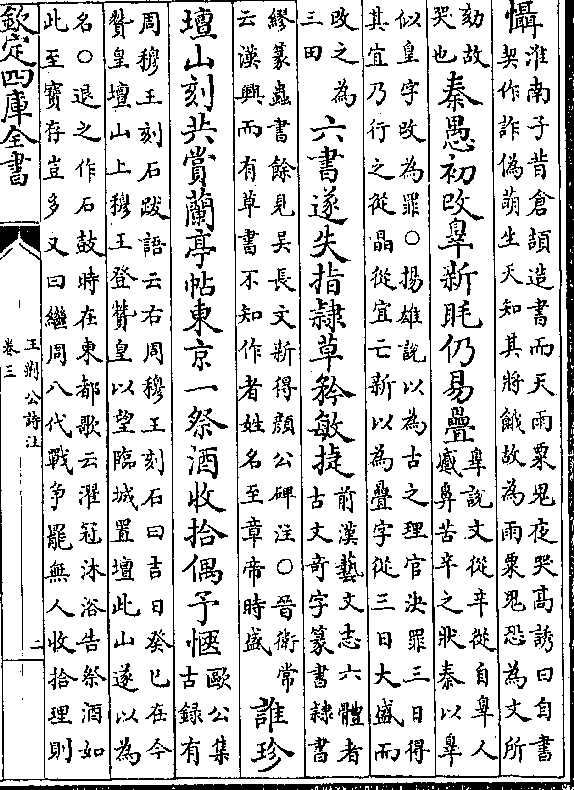 懾
淮南子昔倉頡造書而天雨粟鬼夜哭高誘曰自書
契作詐偽萌生天知其將餓故為雨粟鬼恐為文所
劾故
哭也
秦愚初改辠新眊仍易疊
辠說文從辛從自辠人
蹙鼻苦辛之狀秦以辠
似皇字改為罪○揚雄說以為古之理官決罪三日得
其宜乃行之從晶從宜亡新以為疊字從三日大盛而
改之為
三田
六書遂失指隸草矜敏捷
前漢藝文志六體者
古文奇字篆書隸書
繆篆蟲書餘見吳長文新得顔公碑注○晉衛常
云漢興而有草書不知作者姓名至章帝時盛
誰珍
壇山刻共賞蘭亭帖東京一祭酒收拾偶予愜
歐公集
古録有
周穆王刻石跋語云右周穆王刻石曰吉日癸巳在今
贊皇壇山上穆王登贊皇以望臨城置壇此山遂以為
名○退之作石鼓時在東都歌云濯冠沐浴告祭酒如
此至寶存豈多又曰繼周八代戰争罷無人收拾理則
欽定四庫全書
王荆公詩注
卷三
二